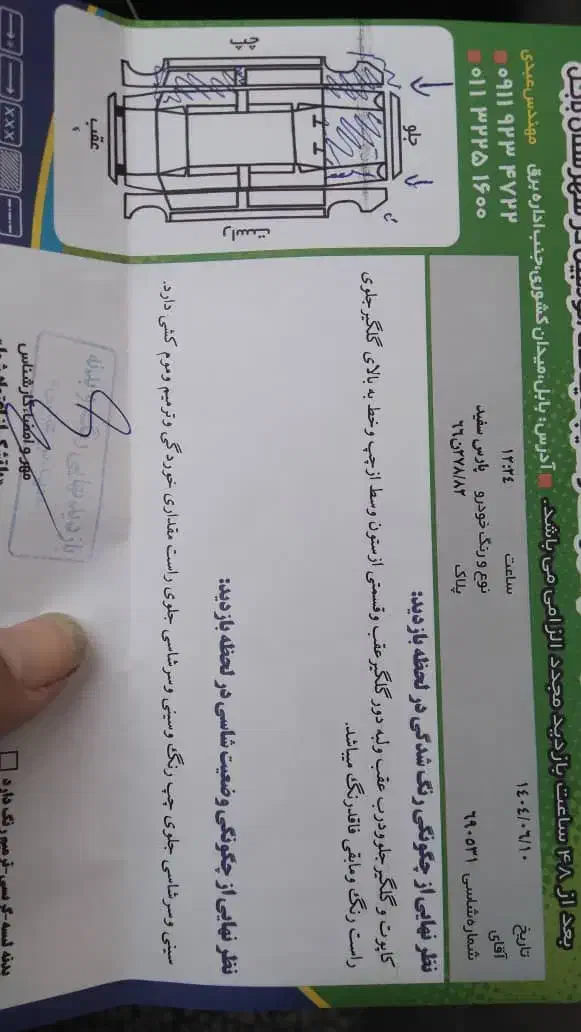 بعد از ۴۸ ساعت بازدید مجدد الزامی می باشد.
آدرس: بابل، میدان کشوری، جنب اداره برق
مهندس عبدی
۰۹۱۱ ۹۲۳ ۴۷۲۲
۰۱۱ ۳۲۲۵۱۶۰۰
تاریخ ۱٤۰٤/۰٦/۱۰
ساعت ۱۲:۲٤
آقای
نوع و رنگ خودرو پارس سفید
شماره شاسی ٦۹۰۵۳۱
پلاک ۲۷۸/۸۲ق٦٦
جلو
عقب
چپ
راست
نظر نهایی از چگونگی رنگ شدگی در لحظه بازدید:
کاپوت و گلگیر جلو و درب عقب و لبه دور گلگیر عقب و قسمتی از ستون وسط از چپ و خط به بالای گلگیر جلوی
راست رنگ و مابقی فاقد رنگ میباشد.
نظر نهایی از چگونگی وضعیت شاسی در لحظه بازدید:
سینی و سرشاسی جلوی چپ رنگ و سینی و سرشاسی جلوی راست مقداری خوردگی و ترمیم و موم کشی دارد.
مهر و امضاء کارشناس
XXX